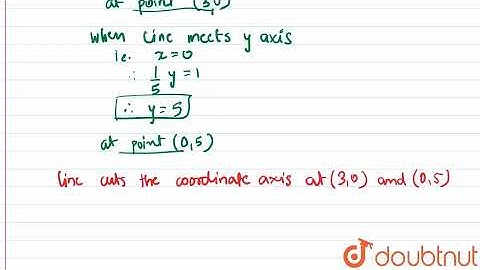 at point (3,0)
When line meets y axis
ie. x=0
∴ 1/5 y = 1
∴ y = 5
at point (0,5)
line cuts the coordinate axis at (3,0) and (0,5)
doubtnut